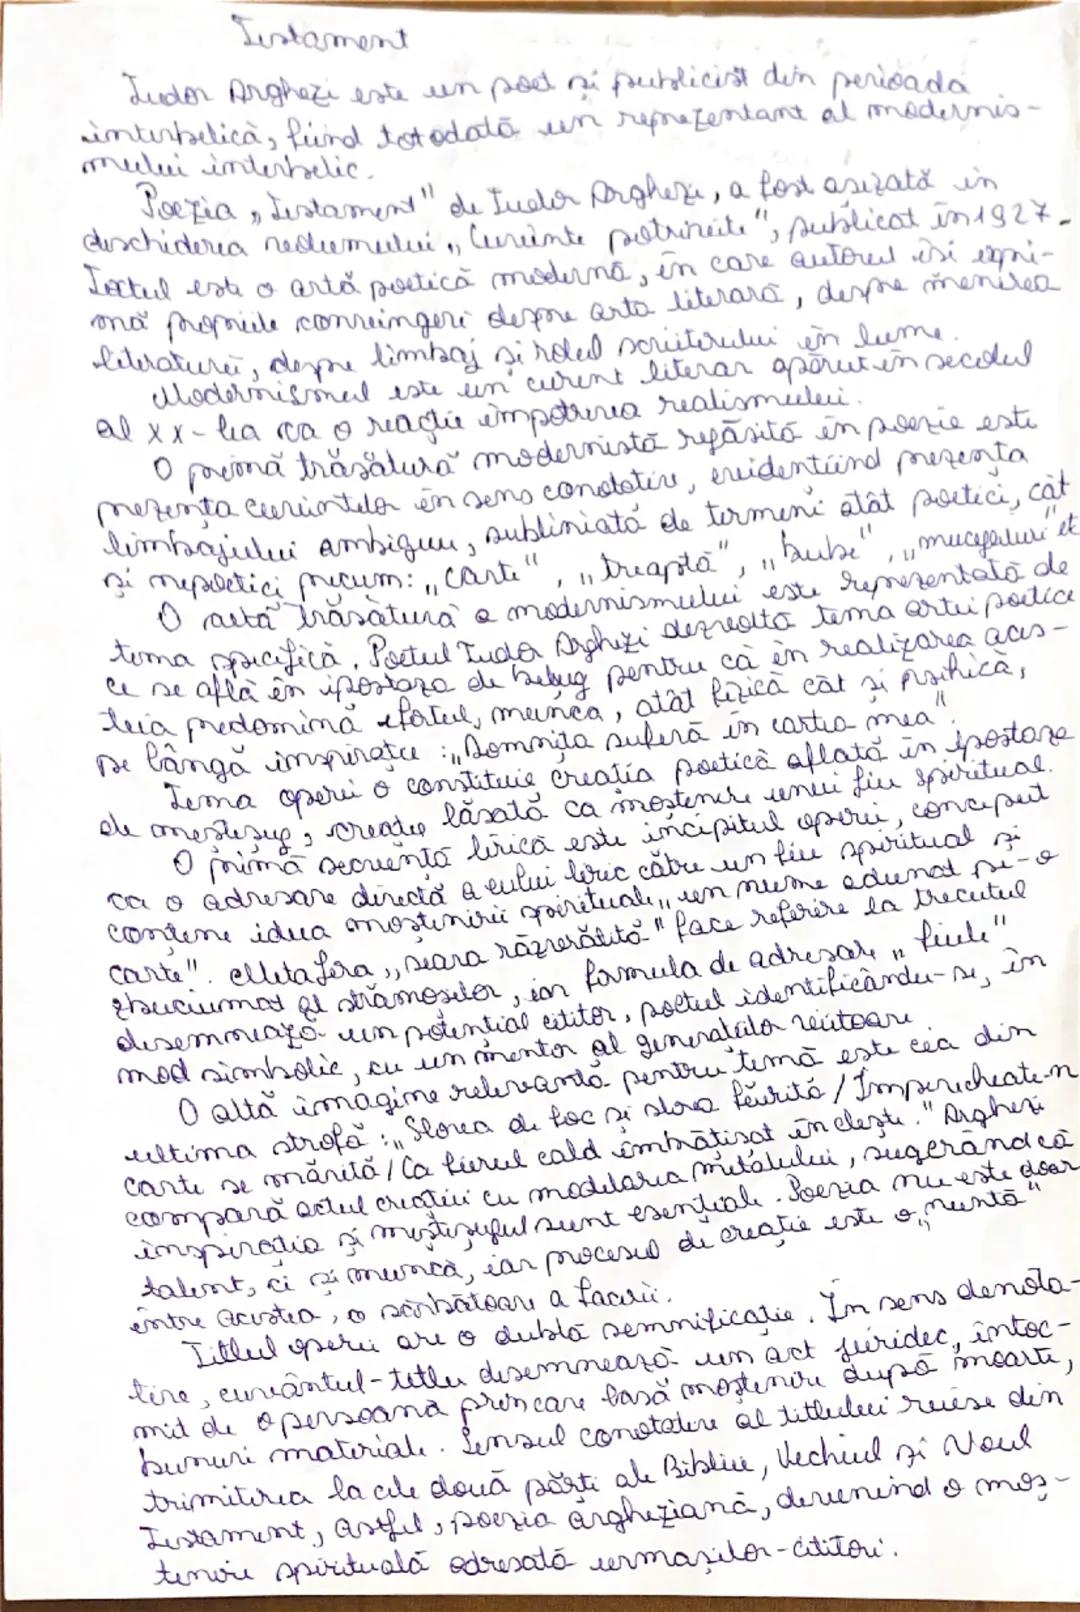 Testament
Tudor Arghezi este un poet și publicist din perioada
interbelică, fiind totodată un reprezentant al modernis-
mului interbelic.
Poezia „Testament" de Tudor Arghezi, a fost așezată în
deschiderea volumului „Cuvinte potrivite", publicat în 1927.
Textul este o artă poetică modernă, în care autorul își expri-
mă propriile convingeri despre arta literară, despre menirea
literaturii, despre limbaj și rolul scriitorului în lume.
Modernismul este un curent literar apărut în secolul
al XX-lea ca o reacție împotriva realismului.
O primă trăsătură modernistă regăsită în poezie este
prezența cuvintelor în sens conotativ, evidențiind prezența
limbajului ambiguu, subliniată de termeni atât poetici, cât
și nepoetici precum: „carte", „treaptă", „bube", „mucegaiuri" etc
O altă trăsătură a modernismului este reprezentată de
tema specifică. Poetul Tudor Arghezi dezvoltă tema artei poetice
ce se află în ipostaza de beșug pentru că în realizarea aces-
teia predomină efortul, munca, atât fizică cât și psihică,
pe lângă inspirație: „Domnița suferă în cartea mea".
Tema operei o constituie creația poetică aflată în ipostaza
de meșteșug, creație lăsată ca moștenire unui fiu spiritual.
O primă secvență lirică este incipitul operei, conceput
ca o adresare directă a eului liric către un fiu spiritual și
conține ideea moștenirii spirituale „un nume adunat pe-o
carte". Metafora „seara răzvrătită" face referire la trecutul
zbuciumat al strămoșilor, iar formula de adresare „fiule"
desemnează un potențial cititor, poetul identificându-se, în
mod simbolic, cu un mentor al generațiilor viitoare.
O altă imagine relevantă pentru temă este cea din
ultima strofă: „Slova de foc și slova făurită / Împerecheate-n
carte se mărită / Ca fierul cald îmbrățișat în clește." Arghezi
compară actul creației cu modelarea metalului, sugerând că
inspirația și meșteșugul sunt esențiale. Poezia nu este doar
talent, ci și muncă, iar procesul de creație este o „nuntă"
între acestea, o sărbătoare a facerii.
Titlul operei are o dublă semnificație. În sens denota-
tive, cuvântul-titlu desemnează un act juridic, întoc-
mit de o persoană prin care lasă moștenire după moarte,
bunuri materiale. Sensul conotativ al titlului reiese din
trimiterea la cele două părți ale Bibliei, Vechiul și Noul
Testament, astfel, poezia argheziană, devenind o moș-
tenire spirituală adresată urmașilor-cititori.